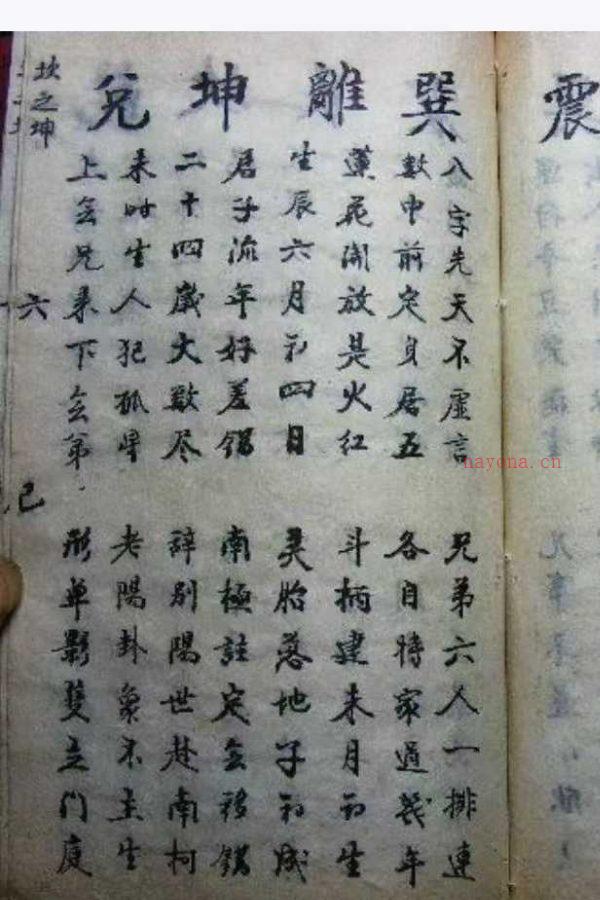 震
巽
離
坤
兌
八字先天不虛言
兄弟六人一排連
數中前定身居五
各自時家過幾年
蓮花開放是火紅
斗柄建未月初生
生辰六月初四日
灵胎落地子初成
君子流年好差錯
南極註定会移錯
二十四歲大數尽
辞别陽世赴南柯
未时生人犯孤星
老陽卦象不主生
上会兄来下会弟
形单影隻立门庭
坎之坤
六
已
nayona.cn